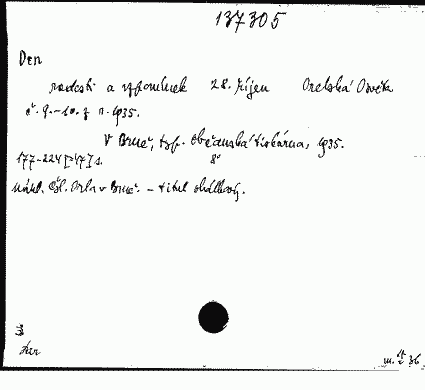 137305
Den
radosti a vzpomínek 28. říjen Orelská Osvěta
č. 9.-10. z r. 1935.
V Brně, typ. Občanská tiskárna, 1935.
177-224 [47] s. 8°
Nákl. Čsl. Orla v Brně. - titul obálkový.
36